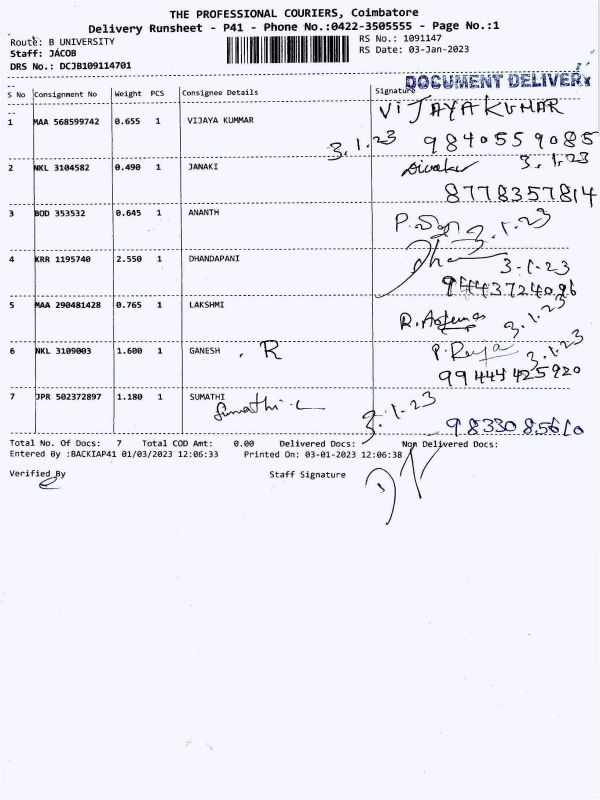 THE PROFESSIONAL COURIERS, Coimbatore
Delivery Runsheet - P41 - Phone No.:0422-3505555 - Page No.:1
Route: B UNIVERSITY
RS No.: 1091147
Staff: JACOB
RS Date: 03-Jan-2023
DRS No.: DCJB109114701
DOCUMENT DELIVERY
S No Consignment No Weight PCS Consignee Details Signature
1 MAA 568599742 0.655 1 VIJAYA KUMMAR VIJAYAKUMAR
3.1.23 9840559085
2 NKL 3104582 0.490 1 JANAKI Divakar 3.1.23
8778357814
3 BOD 353532 0.645 1 ANANTH P. 3.1.23
4 KRR 1195740 2.550 1 DHANDAPANI 3-1-23
94443724096
5 MAA 290481428 0.765 1 LAKSHMI R. 3.1.23
6 NKL 3109003 1.600 1 GANESH . R P. 3.1.23
99444425920
7 JPR 502372897 1.180 1 SUMATHI
Sumathi. 3.1.23
9833085610
Total No. Of Docs: 7 Total COD Amt: 0.00 Delivered Docs: Non Delivered Docs:
Entered By :BACKIAP41 01/03/2023 12:06:33 Printed On: 03-01-2023 12:06:38
Verified By Staff Signature